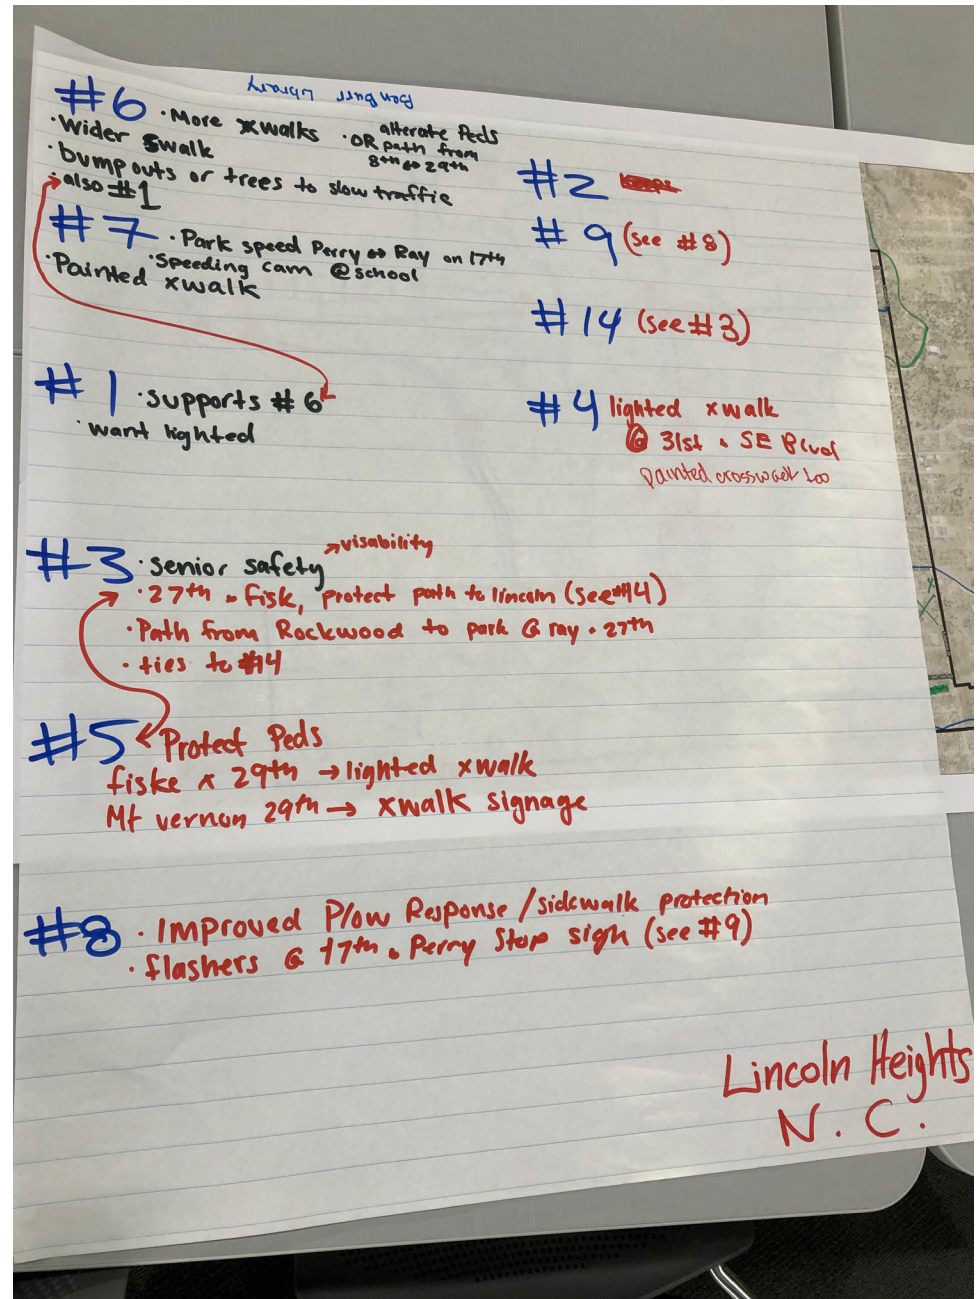 Ben Burr Library
#6 · More xwalks
· Wider swalk
· alterate Peds
OR path from
8th ↔ 29th
· bump outs or trees to slow traffic
· also #1
#7 · Park speed Perry ↔ Ray on 17th
· Speeding cam @school
· Painted xwalk
#1 · supports #6
· want lighted
#3 · senior safety → visability
· 27th & fisk, protect path to lincoln (see #14)
· Path from Rockwood to park @ ray & 27th
· ties to #14
#5 Protect Peds
fiske & 29th → lighted xwalk
Mt vernon 29th → xwalk signage
#8 · Improved Plow Response / sidewalk protection
· flashers @ 17th & Perry Stop sign (see #9)
#2
#9 (see #8)
#14 (see #3)
#4 lighted xwalk
@ 31st & SE Blvd
painted crosswalk too
Lincoln Heights
N. C.